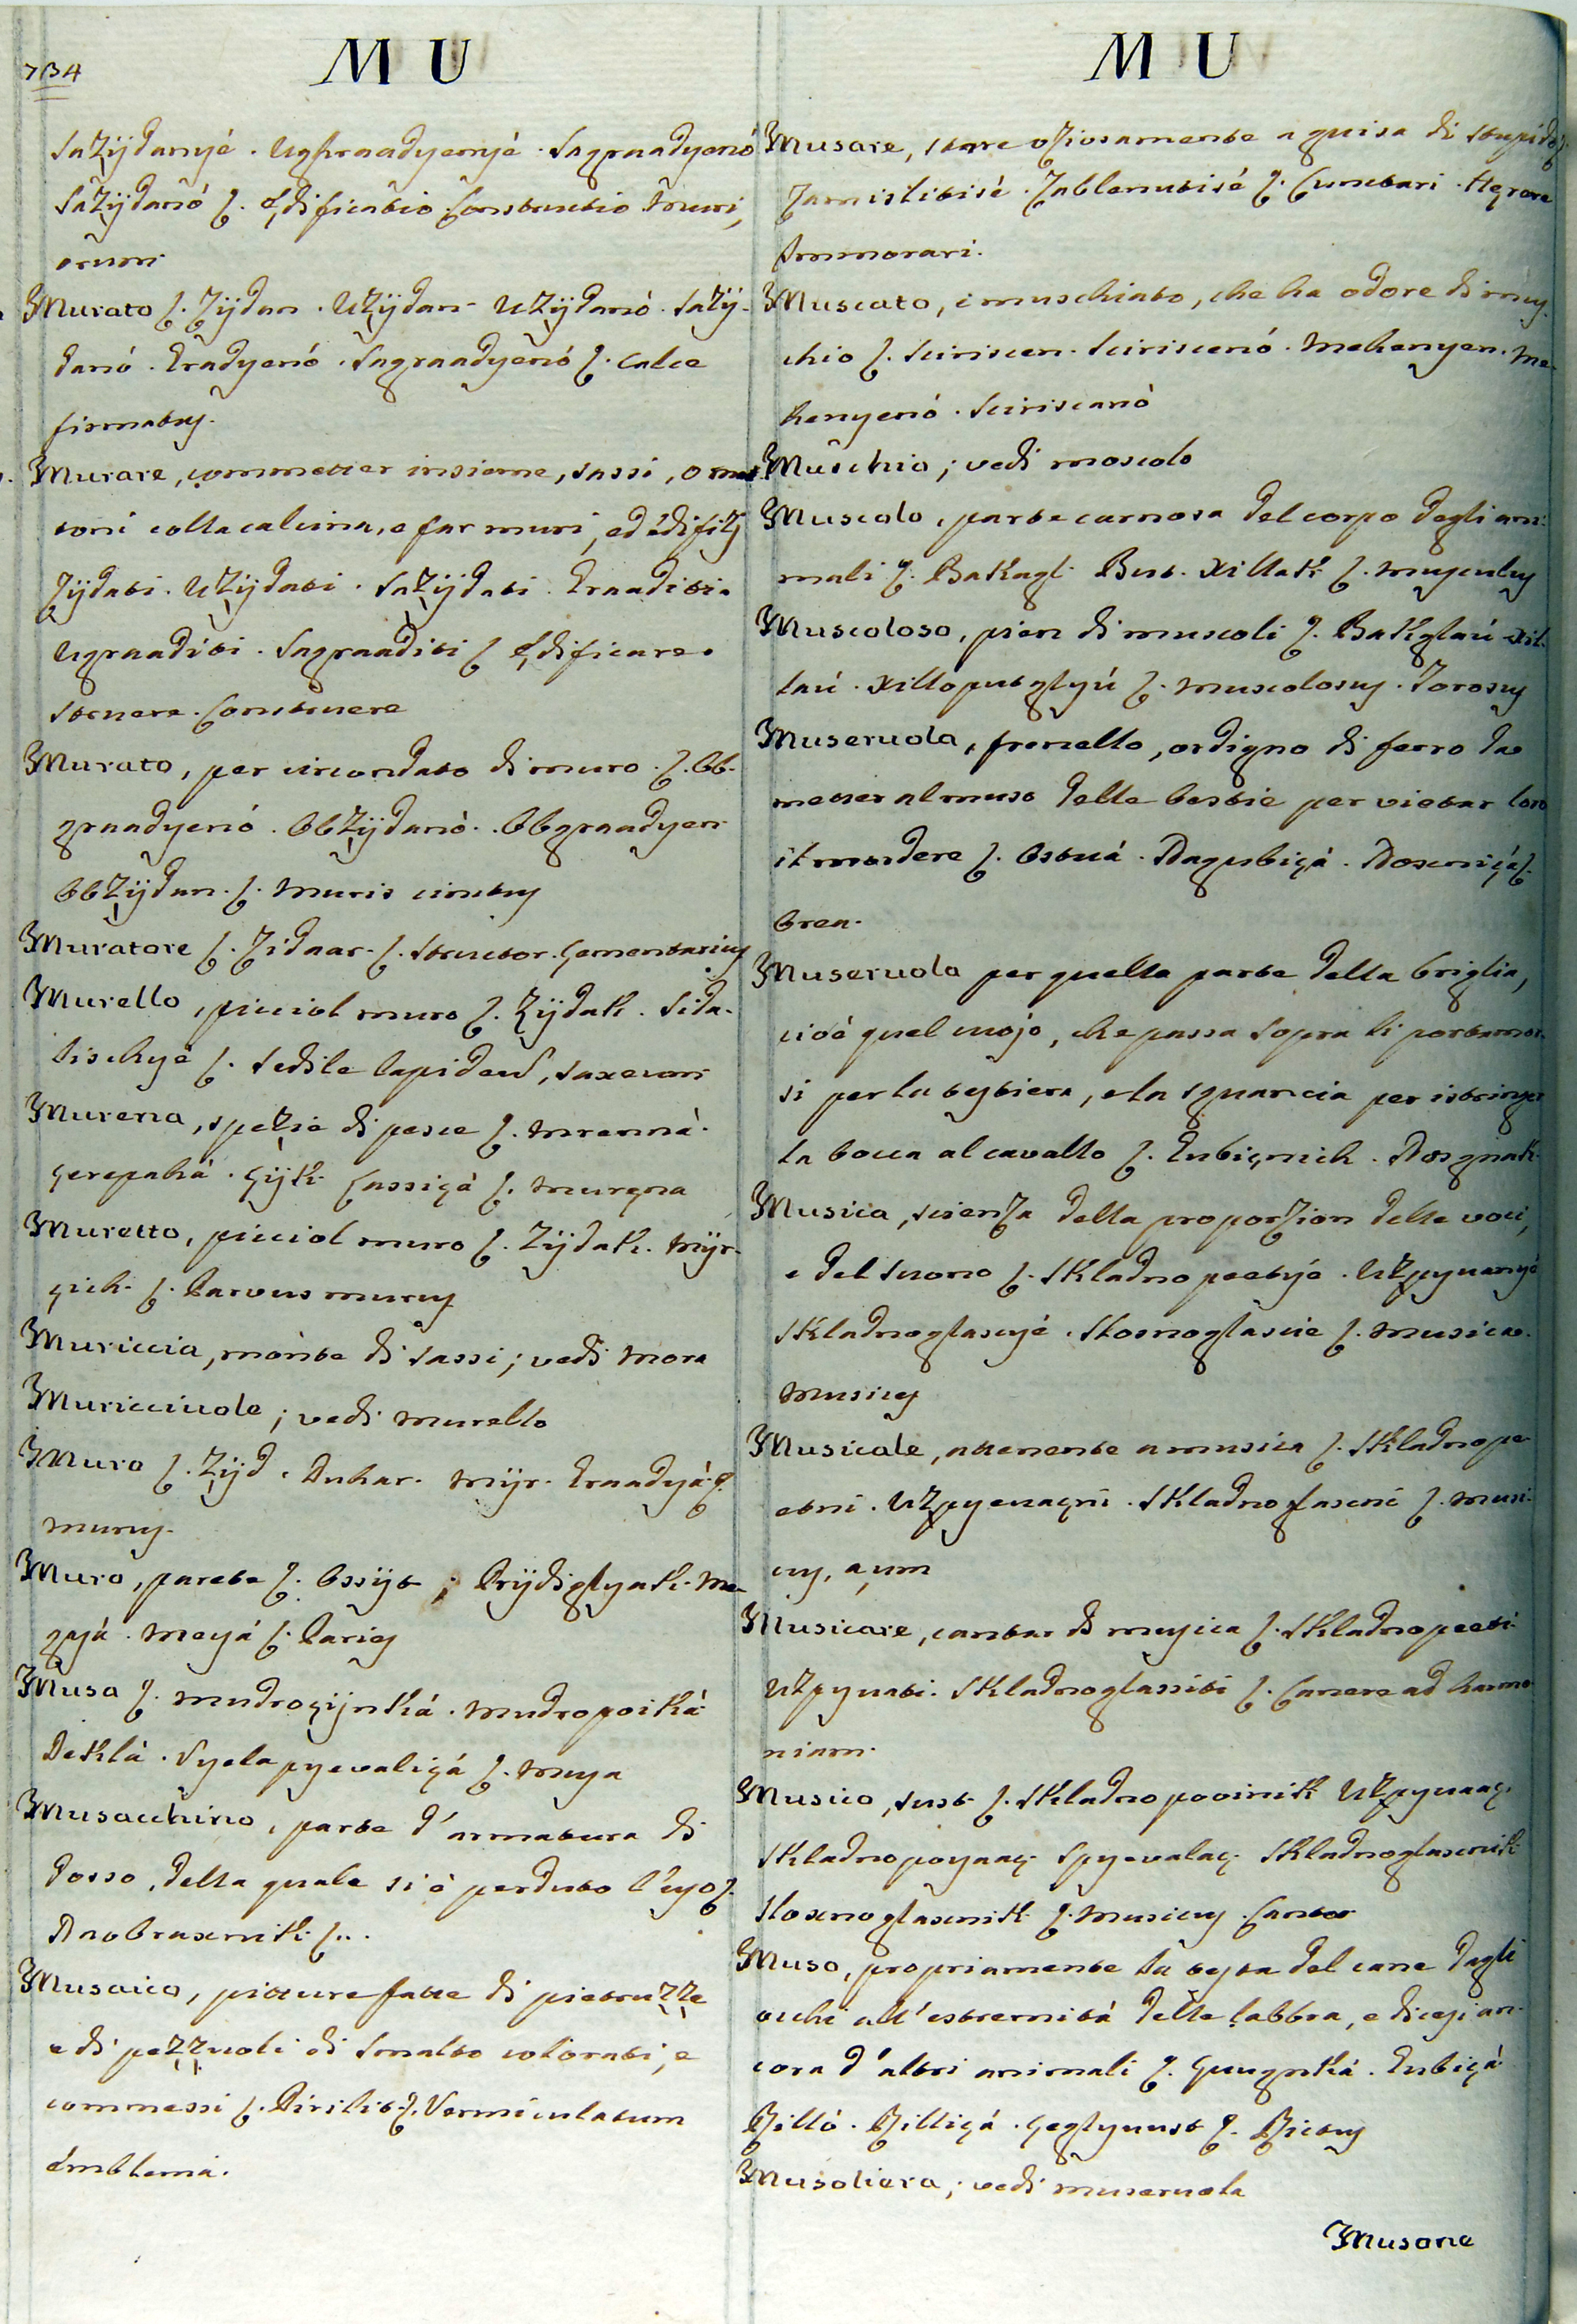 734
M U
Sazijdanyé. Ughraadyenyé. Sagraadyenó
Sazijdanó ſ. Ędificatio. Constructio. Muri,
orum
Murato ſ. Zijdan. Uzijdan. Uzijdanó. Sazij-
danó. Graadyenó. Sagraadyenó ſ. calce
firmatus.
Murare, commetter insieme, sassi, o mat-
toni colla calcina, e far muri, ed édifizj
Zijdati. Uzijdati. Sazijdati. Graaditi.
Ugraaditi. Sagraaditi ſ Ędificare.
Struere. Construere
Murato, per circondato di muro. ſ. Ob-
graadyenó. Obzijdanò. Obgraadyen
Obzijdan. ſ. Muris cinctus
Muratore ſ. Zidaar. ſ. Structor. Cementarius
Murello, picciol muro ſ. Zijdak. Sida-
lischyé ſ. Sedile lapideus, saxeum
Murena, spezie di pesce ſ. Mrennà.
Çerepahá. Gijk. Cassiçá ſ. Muręna
Muretto, picciol muro ſ. Zijdak. Mijr-
çich. ſ. Parvus murus
Muriccia, mónte di sassi; vedi Mora
Muricciuole; vedi murello
Muro ſ. Zijd. Duhar. Mijr. Graadyá ſ.
murus.
Muro, parete ſ. Ossijt; Prijdiglyak. Me-
gyá. Meyá ſ. Paries
Musa ſ. Mudroçijnká. Mudropoiká
Deklá. Vyelapyevaliçá ſ. Musa
Musacchino, parte d'armatura di
dosso, della quale si è perduto l'uso ſ.
Naobruscnik ſ...
Musaico, pitture fatte di pietruzze
e di pezzuoli di smalto colorati, e
commessi ſ. Pirilit ſ. Vermiculatum
émblema.
M U
Musare, stare oziosamente a guisa di stupido ſ.
Zamislitisé. Zablenutisé ſ. Cunctari. Hęrere
Immorari.
Muscato, e muschiato, che ha odore di mus-
chio ſ. Sciriscen. Sciriscenó. Mekenyen. Me-
kenyenó. Sciriscanò
Muschio; vedi moscado
Muscolo, parte carnosa del corpo degli ani-
mali ſ. Bakagl. But. Xillak ſ. musculus
Muscoloso, pien di muscoli ſ. Bakglaú. Xil-
laú. Xilloputglyú ſ. Muscolosus. Torosus
Museruola, frenello, ordigno di ferro da
metter al muso delle bestie per vietar loro
il mordere ſ. Ostuá. Nagubiçá. Noscniçá ſ.
Orea.
Museruola per quella parte della briglia,
cioè quel cuojo, che passa sopra li portamor-
si per la testiera, e la sguancia per istringer
la bocca al cavallo ſ. Gubiçnik. Nosgnak
Musica, scienza della proporzion delle voci,
e del suono ſ. Skladnopeetyé. Uzpyuanyé
Skladnoglascyé. Sloxnoglascie ſ. Musica.
Musice
Musicale, attenente a musica ſ. Skladnope-
etni. Uzpyeuaçni. Skladnoglascni ſ. Musi-
cus, a, um
Musicare, cantar di musica ſ. Skladnopeeti
Uzpyuati. Skladnoglassiti ſ. Canere ad harmo-
niam.
Musico, sust ſ. Skladnopooinik Uzpyuaaç.
Skladnopoyaaç. Spyevalaç. Skladnoglascnik
Sloxnoglascnik ſ. Musicus. Cantor
Muso, propriamente la testa del cane dagli
occhi all'estremità delle labbra, e dicesi an-
cora d'altri animali ſ. Gungnká. Gubiçá
Rilló. Rilliçá. Çeglyuust ſ. Rictus
Musoliera; vedi museruola
Musone